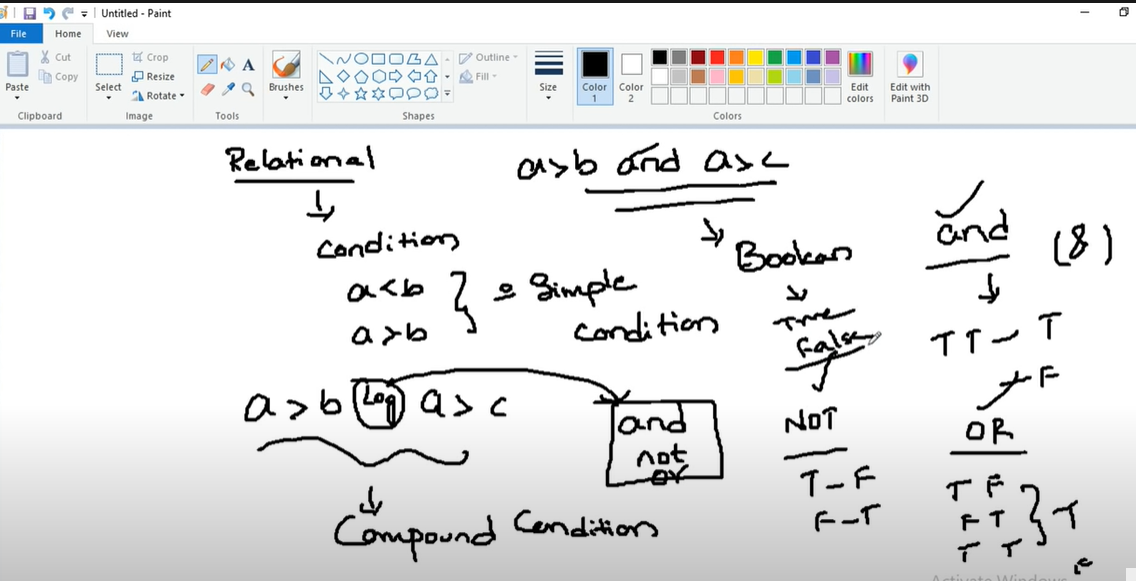 Untitled - Paint
File Home View
Paste Cut Copy Clipboard
Select Crop Resize Rotate Image
Tools
Brushes
Shapes
Outline
Fill
Size
Color 1
Color 2
Colors
Edit colors
Edit with Paint 3D
Relational
a>b and a>c
condition
a<b
a>b
Simple
condition
a>b Log a>c
Compound Condition
and
not
or
Boolean
True
False
NOT
T-F
F-T
and (8)
TT-T
F
OR
T F
F T
T T
T
F
Activate Windows